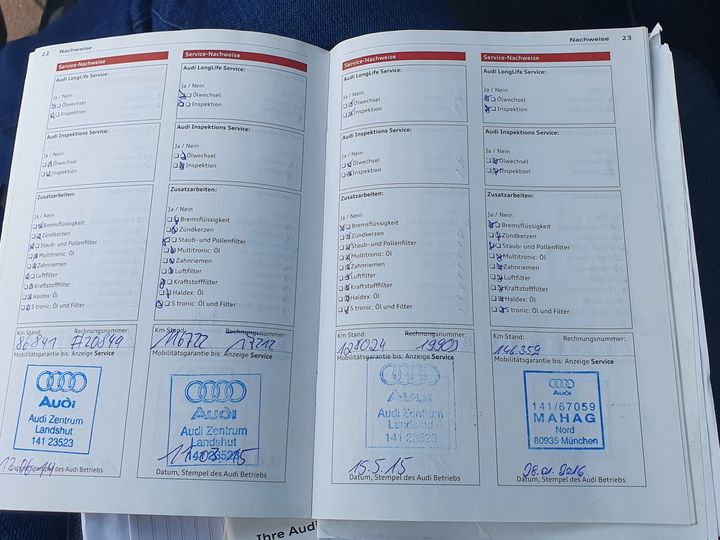 22 Nachweise
Service-Nachweise
Audi LongLife Service:
Ja / Nein
Ölwechsel
Inspektion
Audi Inspektions Service:
Ja / Nein
Ölwechsel
Inspektion
Zusatzarbeiten:
Ja / Nein
Bremsflüssigkeit
Zündkerzen
Staub- und Pollenfilter
Multitronic: Öl
Zahnriemen
Luftfilter
Kraftstofffilter
Haldex: Öl
S tronic: Öl und Filter
Km Stand: Rechnungsnummer:
86841
Mobilitätsgarantie bis: Anzeige Service
Audi
Audi Zentrum
Landshut
141 23523
Datum, Stempel des Audi Betriebs
Service-Nachweise
Audi LongLife Service:
Ja / Nein
Ölwechsel
Inspektion
Audi Inspektions Service:
Ja / Nein
Ölwechsel
Inspektion
Zusatzarbeiten:
Ja / Nein
Bremsflüssigkeit
Zündkerzen
Staub- und Pollenfilter
Multitronic: Öl
Zahnriemen
Luftfilter
Kraftstofffilter
Haldex: Öl
S tronic: Öl und Filter
Km Stand: Rechnungsnummer:
116722 17212
Mobilitätsgarantie bis: Anzeige Service
Audi
Audi Zentrum
Landshut
141 23523
Datum, Stempel des Audi Betriebs
Nachweise 23
Service-Nachweise
Audi LongLife Service:
Ja / Nein
Ölwechsel
Inspektion
Audi Inspektions Service:
Ja / Nein
Ölwechsel
Inspektion
Zusatzarbeiten:
Ja / Nein
Bremsflüssigkeit
Zündkerzen
Staub- und Pollenfilter
Multitronic: Öl
Zahnriemen
Luftfilter
Kraftstofffilter
Haldex: Öl
S tronic: Öl und Filter
Km Stand: Rechnungsnummer:
128024
Mobilitätsgarantie bis: Anzeige Service
Audi
Audi Zentrum
Landshut
141 23523
15.5.15
Datum, Stempel des Audi Betriebs
Service-Nachweise
Audi LongLife Service:
Ja / Nein
Ölwechsel
Inspektion
Audi Inspektions Service:
Ja / Nein
Ölwechsel
Inspektion
Zusatzarbeiten:
Ja / Nein
Bremsflüssigkeit
Zündkerzen
Staub- und Pollenfilter
Multitronic: Öl
Zahnriemen
Luftfilter
Kraftstofffilter
Haldex: Öl
S tronic: Öl und Filter
Km Stand: Rechnungsnummer:
146359
Mobilitätsgarantie bis: Anzeige Service
Audi
141/67059
MAHAG
Nord
80935 München
28.01.2016
Datum, Stempel des Audi Betriebs
Ihre Audi